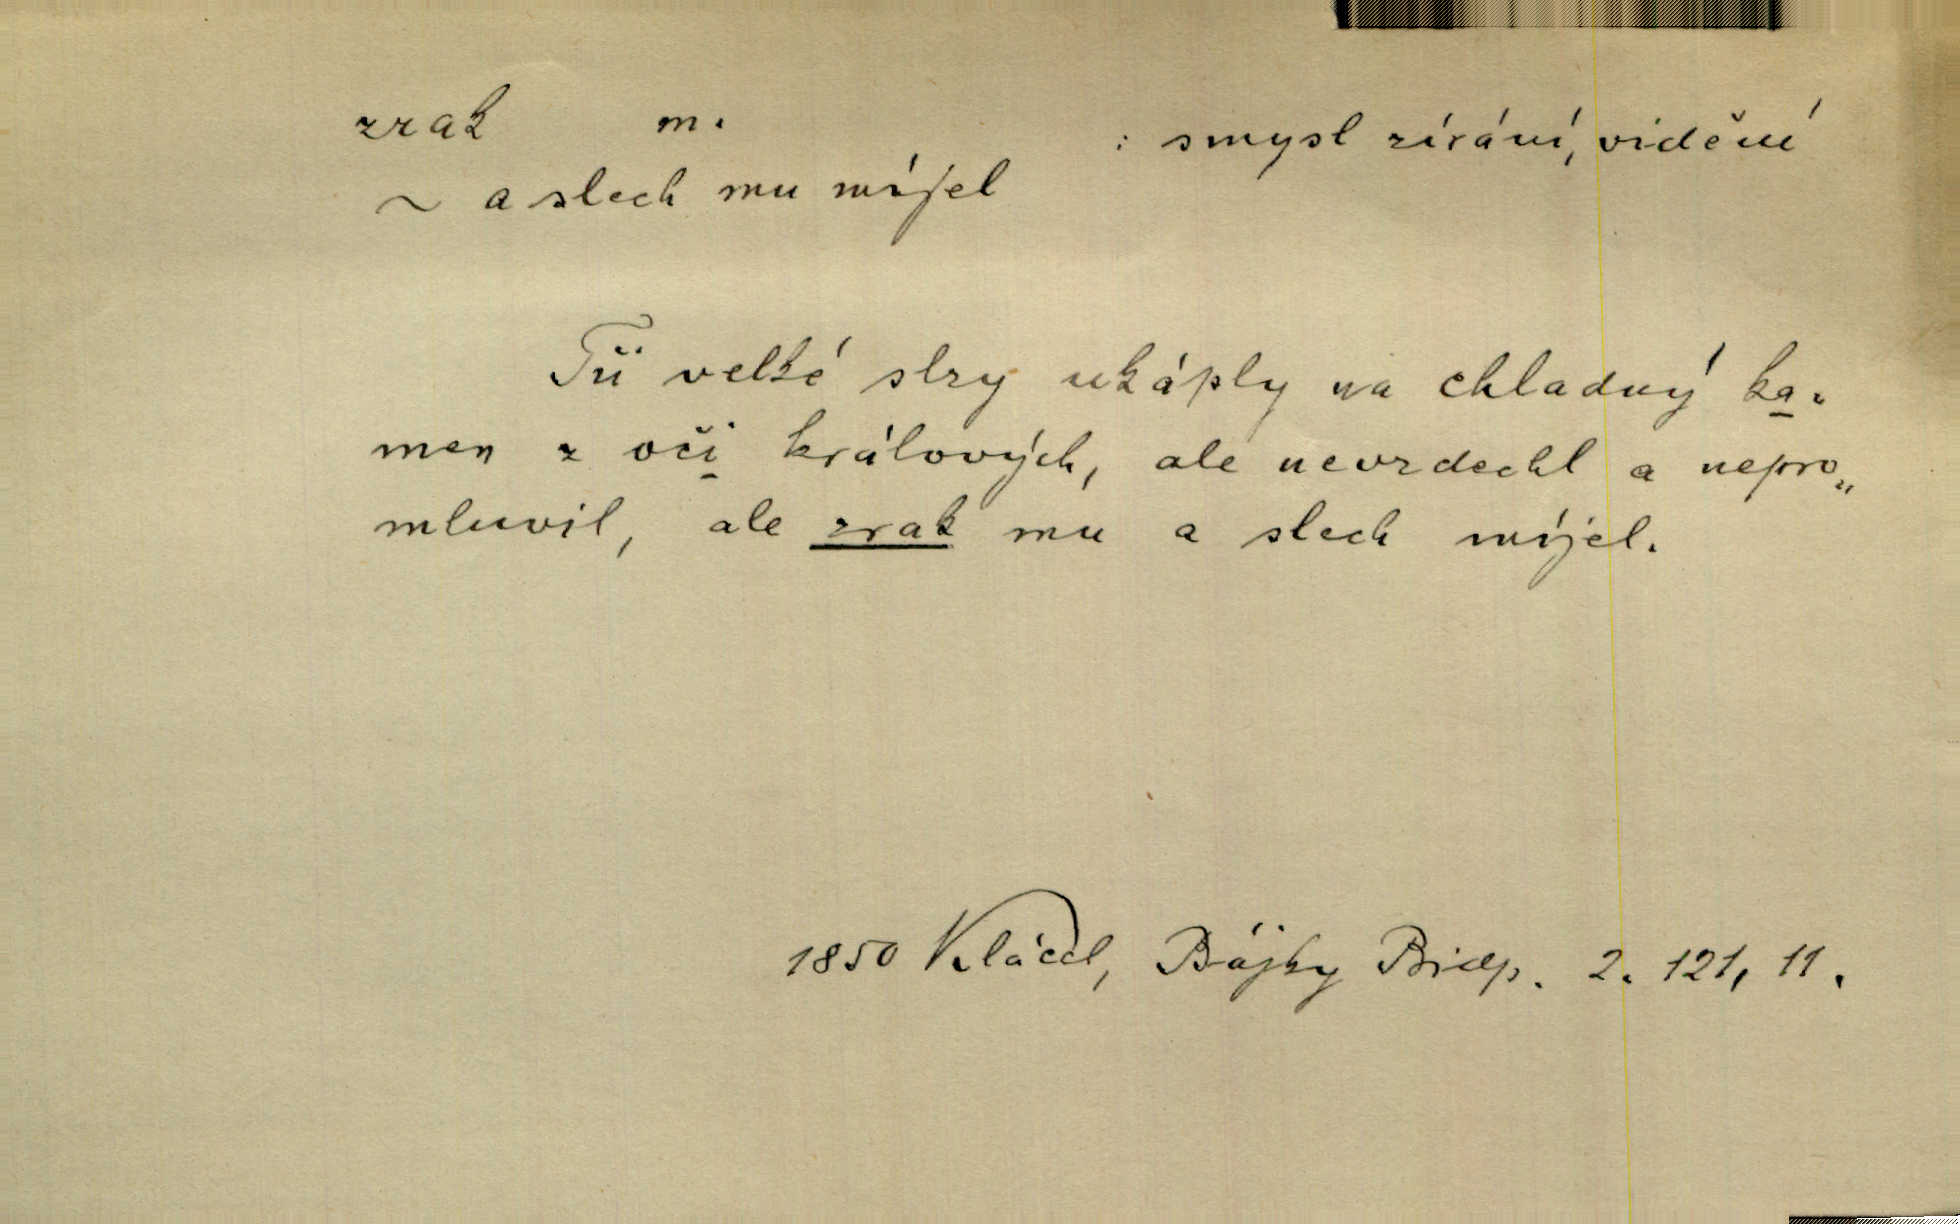 zrak m. : smysl zírání, vidění
~ a slech mu míjel
Tři velké slzy ukáply na chladný ka-
men z oči králových, ale nevzdechl a nepro„
mluvil, ale zrak mu a slech míjel.
1850 Klácel, Bájky Bidp. 2. 121, 11.